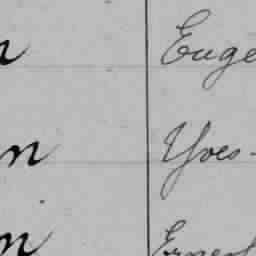 n Euge
n Yves-
n Ernest